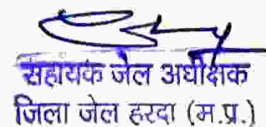 सहायक जेल अधीक्षक
जिला जेल हरदा (म.प्र.)